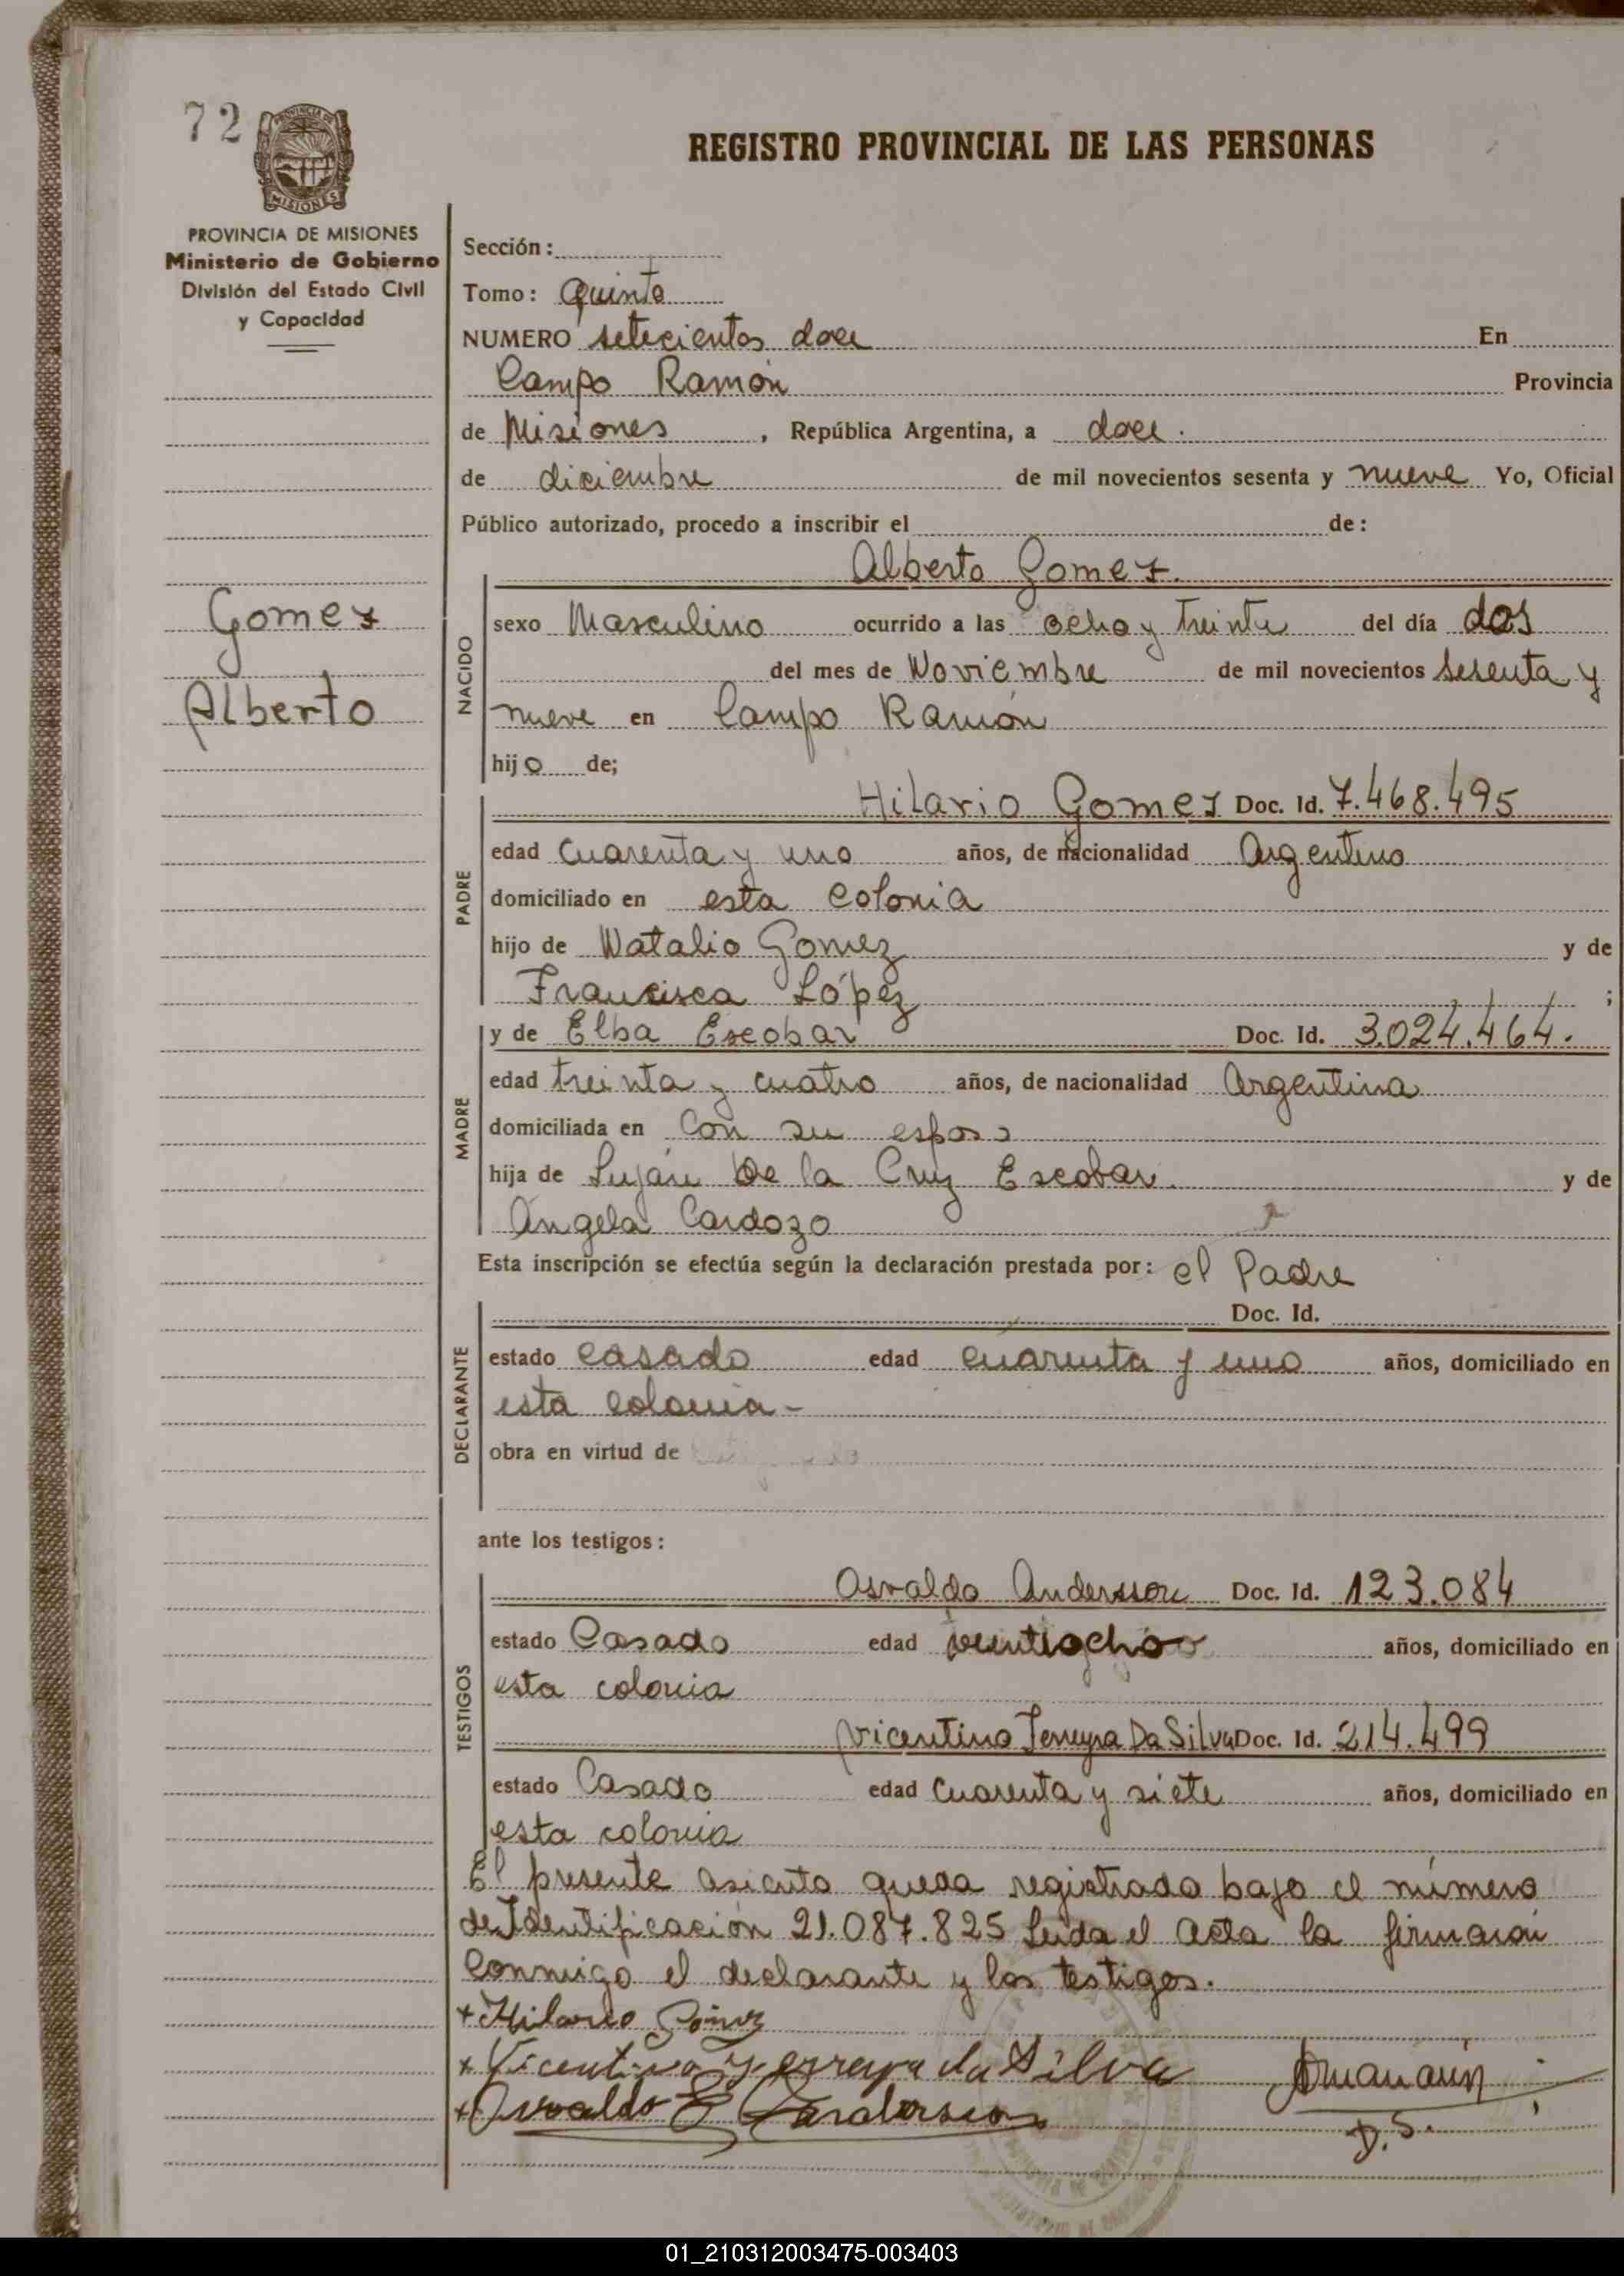 72
PROVINCIA DE
MISIONES
REGISTRO PROVINCIAL DE LAS PERSONAS
PROVINCIA DE MISIONES
Ministerio de Gobierno
División del Estado Civil
y Capacidad
Sección:
Tomo: Quinto
NUMERO setecientos doce En
Campo Ramón Provincia
de Misiones, República Argentina, a doce.
de diciembre de mil novecientos sesenta y nueve Yo, Oficial
Público autorizado, procedo a inscribir el de:
Alberto Gomez.
Gomez
Alberto
NACIDO
sexo Masculino ocurrido a las ocho y treinta del día dos
del mes de Noviembre de mil novecientos sesenta y
nueve en Campo Ramón
hijo de;
PADRE
Hilario Gomez Doc. Id. 7.468.495
edad cuarenta y uno años, de nacionalidad Argentino
domiciliado en esta colonia
hijo de Natalio Gomez y de
Francisca López ;
MADRE
y de Elba Escobar Doc. Id. 3.024.464.
edad treinta y cuatro años, de nacionalidad Argentina
domiciliada en con su esposo
hija de Luján De la Cruz Escobar. y de
Angela Cardozo
Esta inscripción se efectúa según la declaración prestada por: el Padre
DECLARANTE
Doc. Id.
estado casado edad cuarenta y uno años, domiciliado en
esta colonia-
obra en virtud de
ante los testigos:
TESTIGOS
Osvaldo Andersson Doc. Id. 123.084
estado Casado edad veintiocho años, domiciliado en
esta colonia
Vicentino Ferreyra Da Silva Doc. Id. 214.499
estado Casado edad cuarenta y siete años, domiciliado en
esta colonia
El presente asiento queda registrado bajo el número
de Identificación 21.087.825 Leida el Acta la firmaron
conmigo el declarante y los testigos.
+ Hilario Gomez
+ Vicentino Ferreyra da Silva
+ Osvaldo E Andersson
D.S.
01_210312003475-003403